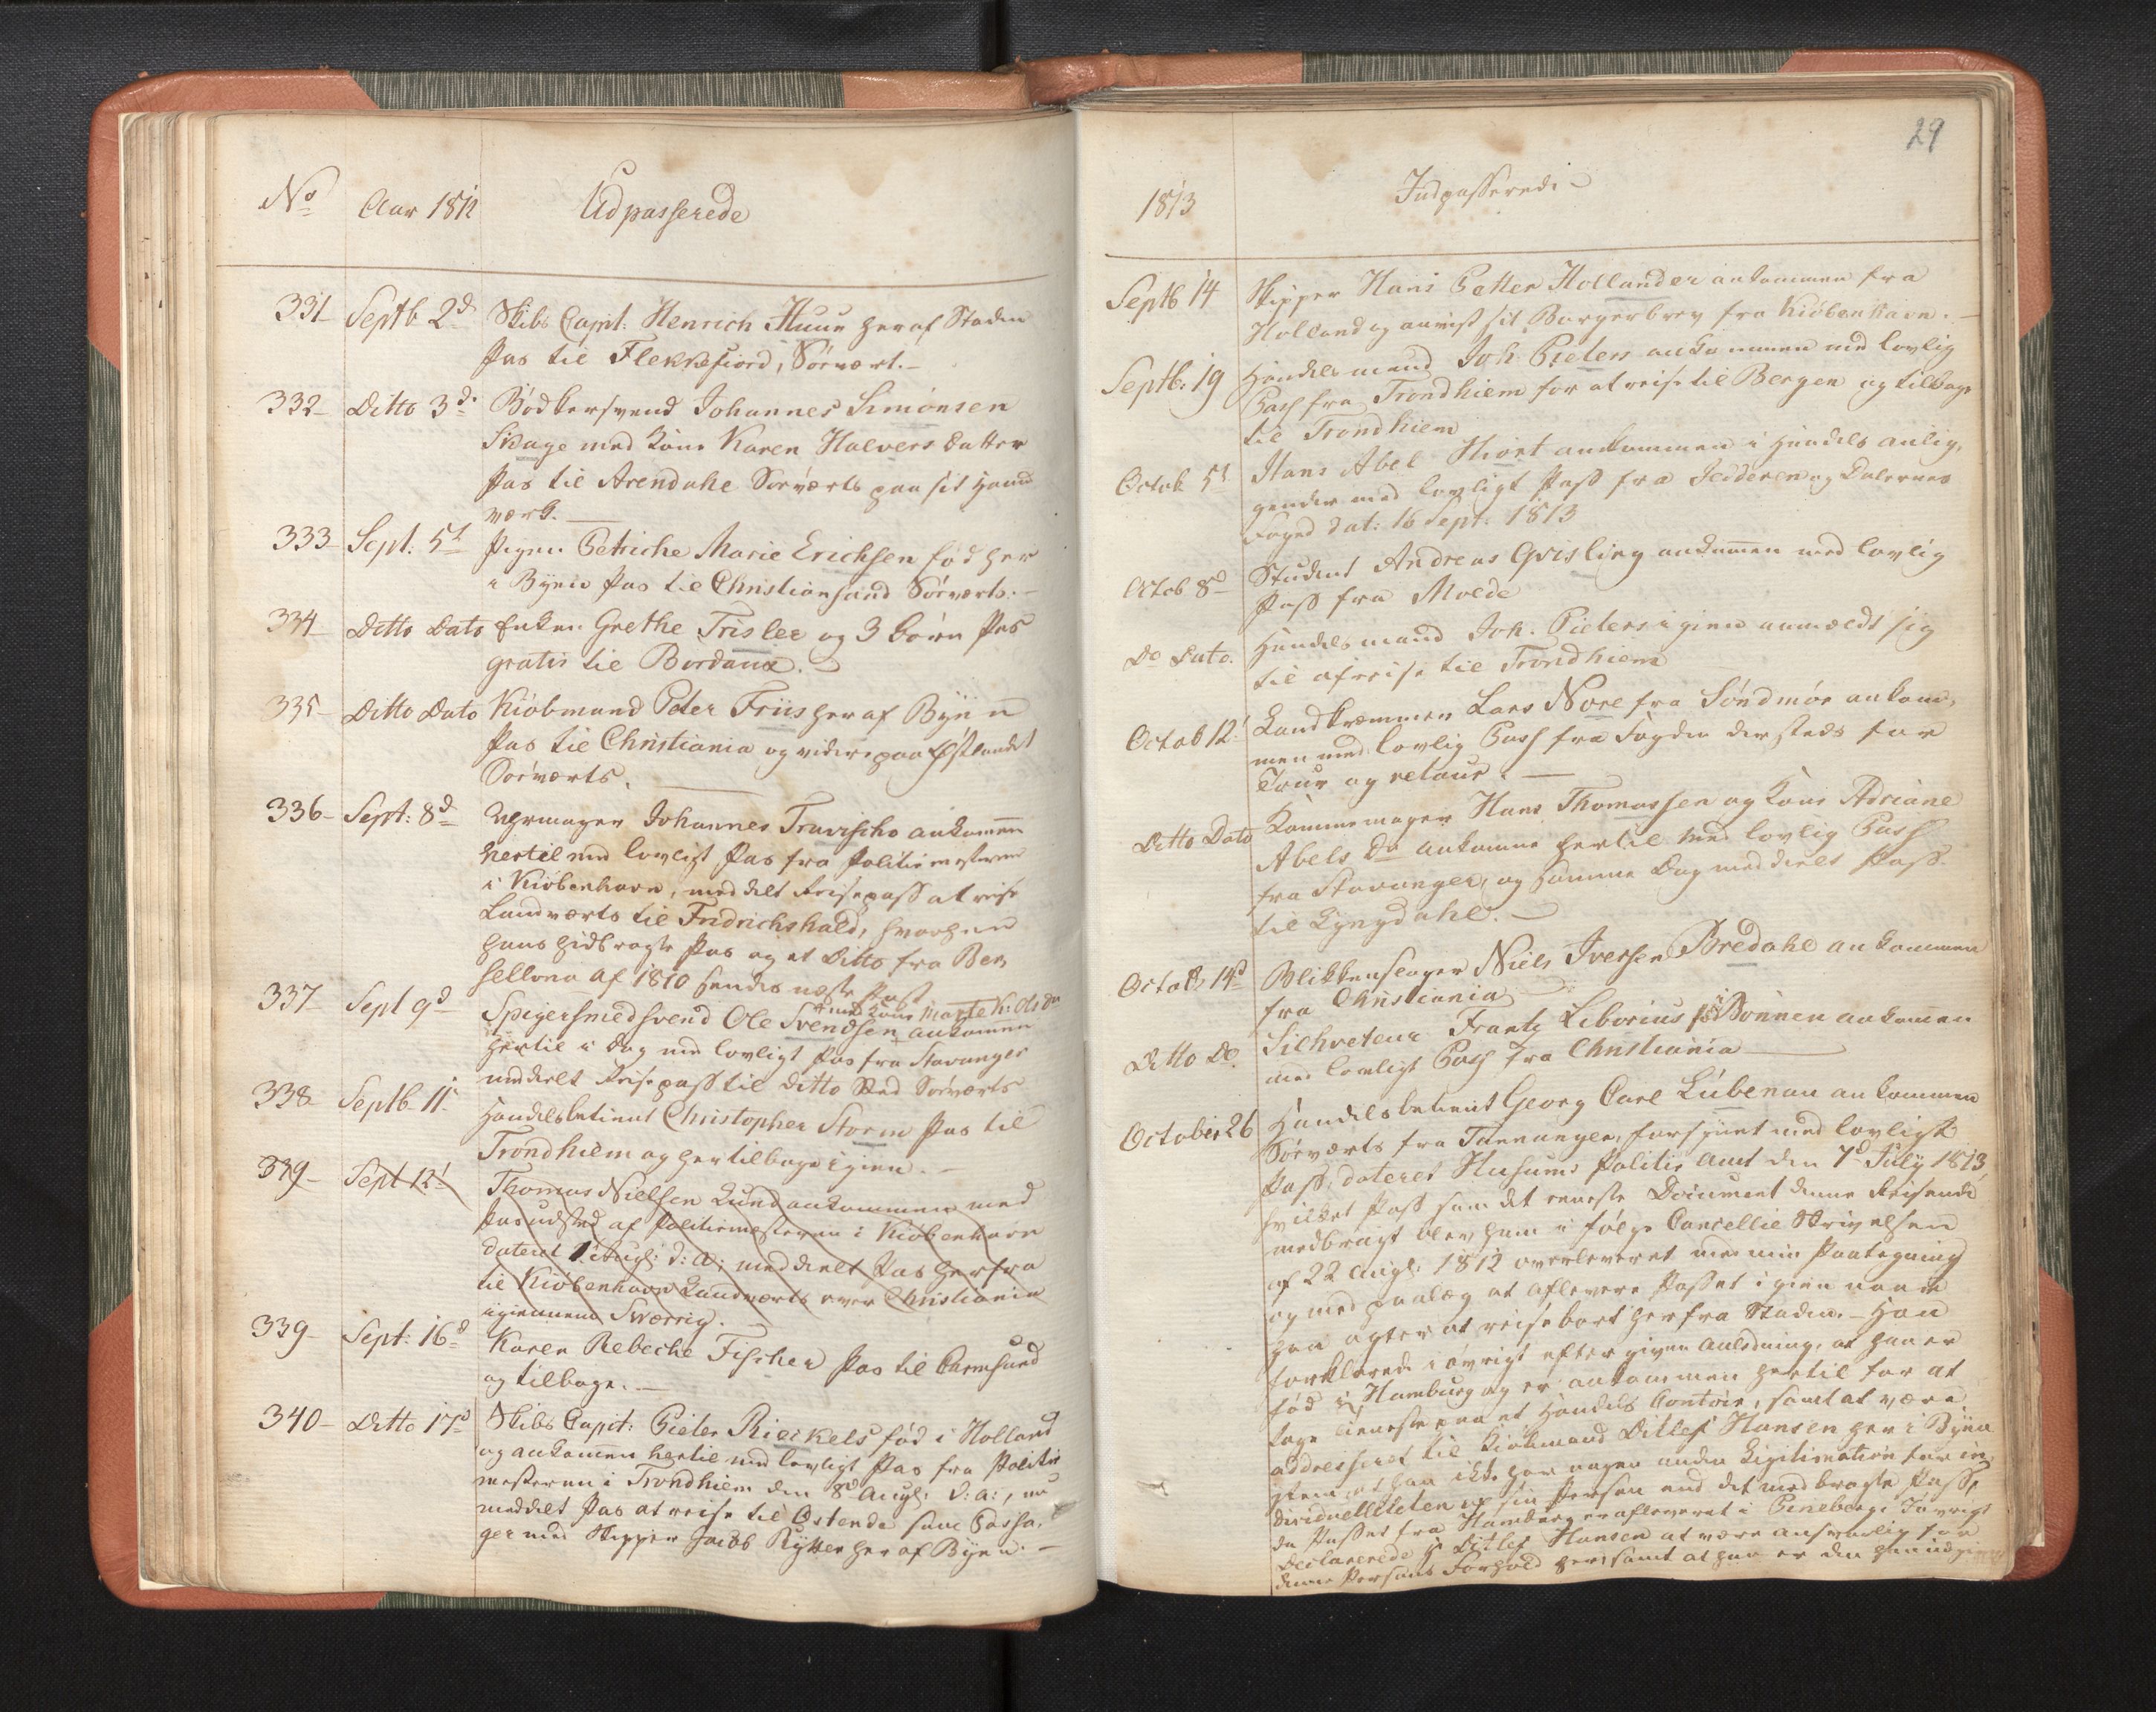 No Aar 1812 Udpasserede
331 Septb 2d Skibs Capit: Henrich Huun her af Staden
Pas til Flekkefiord, Sørvært.
332 Ditto 3d Bødkersvend Johannes Simonsen
Skage med Kone Karen Halvers datter
Pas til Arendahl Sørværts paa sit Haand
værk.
333 Sept. 5t Pigen Petriche Marie Erichsen fød her
i Byen Pas til Christiansand Sørværts.
334 Ditto Dato Enken Grethe Trisler og 3 børn Pas
gratis til
335 Ditto Dato Kiøbmand Peter Friis her af Byen
Pas til Christiania og videre paa Østlandet
Sørværts.
336 Sept: 8d Johannes Travischo ankommen
hertil med lovligt Pas fra Politiemesteren
i Kiøbenhavn, meddelt Reisepass at reise
Landværts til Fridrichshald, hvorhen
hans hidbragte Pas og et Ditto fra
af 1810 sendes næste Post
337 Sept 9d Spigersmedsvend Ole Svendsen + ankommen
+ med Kone Marte K: Ols Dr
hertil i Dag med lovligt Pas fra Stavanger
meddelt Reisepass til ditto Sted Sørværts
338 Septb 11 Handelsbetient Christopher Storm Pas til
Trondhiem og her tilbage igien.
339 Sept 12t Thomas Nielsen Lund ankommen med
Pas udsted af Politiemesteren i Kiøbenhavn
dateret Augl: d: A: meddeelt Pas herfra
til Kiøbenhavn Landværts over Christiania
igiennem Sverrig.
339 Sept: 16d Karen Rebeche Fischer Pas til Carmsund
og tilbage.
340 Ditto 17d Skibs Capit: Pieter Rieckels fød i Holland
og ankommen hertil med lovligt Pas fra Politie
mesteren i Trondhiem den 8d Augl: d: a:, nu
meddelt Pas at reise til Ostende som Passa,
ger med Skipper Jacob Rytter her af Byen.
29
1813 Indpasserede
Septb 14 Skipper Hans Petter Hollander ankommen fra
Holland og anvist sit Borgerbrev fra Kiøbenhavn.
Septb: 19 Handelsmand Joh. Pieters ankommen med lovlig
Pass fra Trondhiem for at reise til Bergen og tilbage
til Trondhiem
Octob 5t Hans Abel Hiort ankommen i Handels anlig,
gender med lovligt Pass fra Jedderen og Dalernes
Foged dat: 16 Sept. 1813
Octob 8d Student Andreas Qvisling ankommen med lovlig
Pass fra Molde
Do Dato. Handelsmand Joh. Pieters igien anmeldt sig
til afreise til Trondhiem
Octob 12t Landkræmmer Lars Nore fra Søndmør ankom,
men med lovlig Pass fra Fogden dersteds for
Tour og retour.
Ditto Dato Kammemager Hans Thomassen og Kone Adriane
Abels Dr ankomne hertil med lovlig Pass
fra Stavanger, og samme Dag meddeelt Pass
til Lyngdahl.
Octob. 14d Blikkenslager Niels Iversen Bredahl ankommen
fra Christiania
Ditto Do Silhveteur Frantz Liborius Schmidt ankommen
med lovligt Pass fra Christiania
October 26 Handelsbetient Georg Carl Lübenau ankommen
Sørværts fra Tananger, forsynet med lovligt
Pass, dateret Husums Politie Amt den 7d July 1813,
hvilket Pass som det eeneste Document denne Reisende
medbragt blev ham i følge Cancellie Skrivelsen
af 22 Augl: 1812 overleveret med min Paategning
og med paalæg at aflevere Passet igien naar
han agter at reise bort herfra Staden. Han
forklarede i øvrigt efter given Anledning, at han er
fød i Hamburg og er ankommen hertil for at
tage tieneste paa et Handels Contoir, samt at være
addresseret til Kiøbmand Ditlef Hansen her i Byen
item at han ikke har nogen anden Legitimation for in,
dividualiteten af sin Person end det medbragte Pass,
da Passet fra Hamburg er afleveret i Pineberg. I øvrigt
Declarerede Hr Ditlef Hansen at være ansvarlig for
denne Persons Forhold her samt at han er den han udgiver